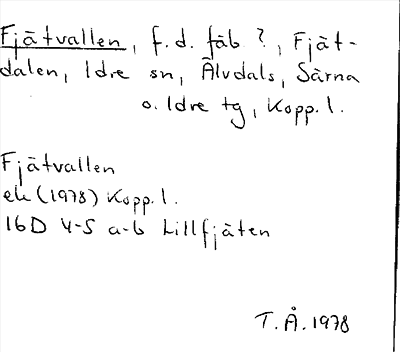 Fjätvallen, f.d. fäb ?, Fjät-
dalen, Idre sn, Älvdals, Särna
o. Idre tg, Kopp. l.
Fjätvallen
ek (1978) Kopp. l.
16D 4-5 a-b Lillfjäten
T. Å. 1978